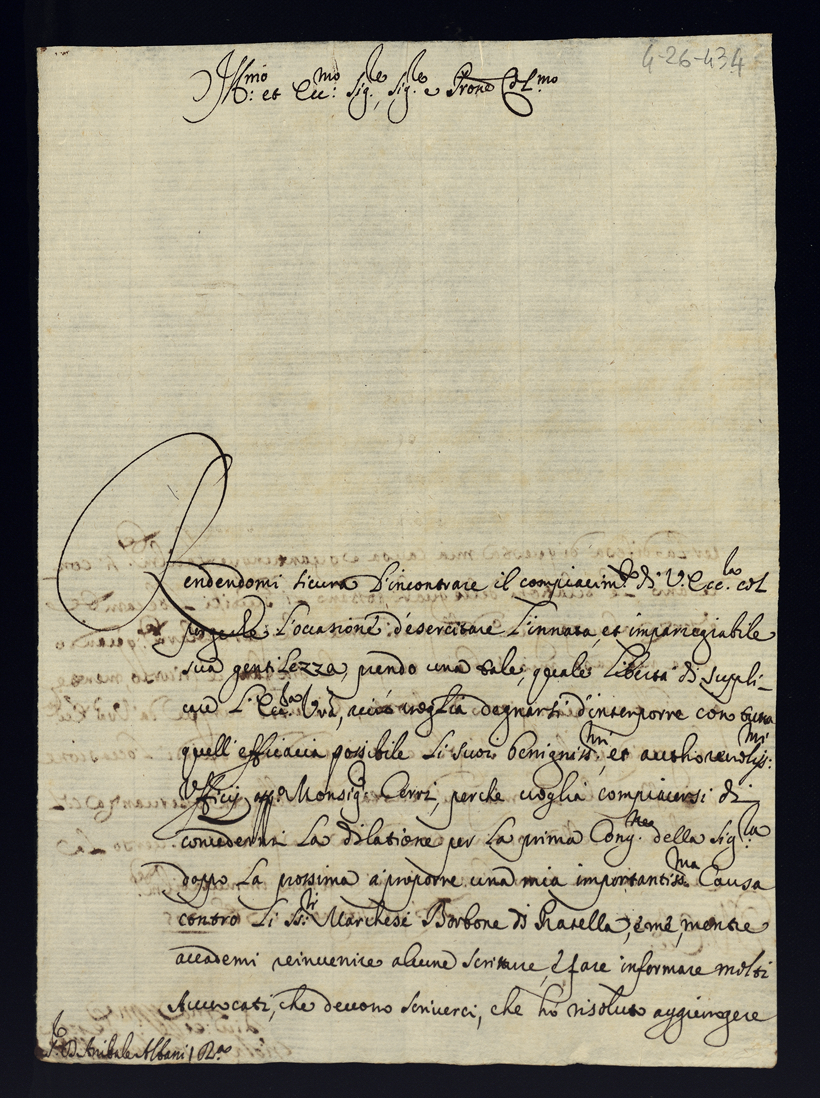 4-26-434
Ill.mo et Ecc.mo Sig.re Sig.re e Prone Col.mo
Rendendomi sicura d'incontrare il compiacim.to di V. Ecc.za col
porgerle l'occasione d'esercitare l'innata, et impareggiabile
sua gentilezza, prendo una tale, quale libertà di suppli-
care l'Ecc.za Vra, acciò voglia degnarsi d'interporre con tutta
quell'efficacia possibile li suoi benigniss.mi, et authorevoliss.mi
Ufficij app.o Monsig.r Cerri, perche voglia compiacersi di
concedermi la dilatione per la prima Cong.ne della Sig.ra
doppo la prossima a proporre una mia importantiss.ma Causa
contro li SS.ri Marchese Borbone di Patella, e me, mentre
accademi reinvenire alcune scritture, e fare informare molti
Avvocati, che devono scriverci, che hò risoluto aggiungere
S.r D. Anibale Albani / R.a